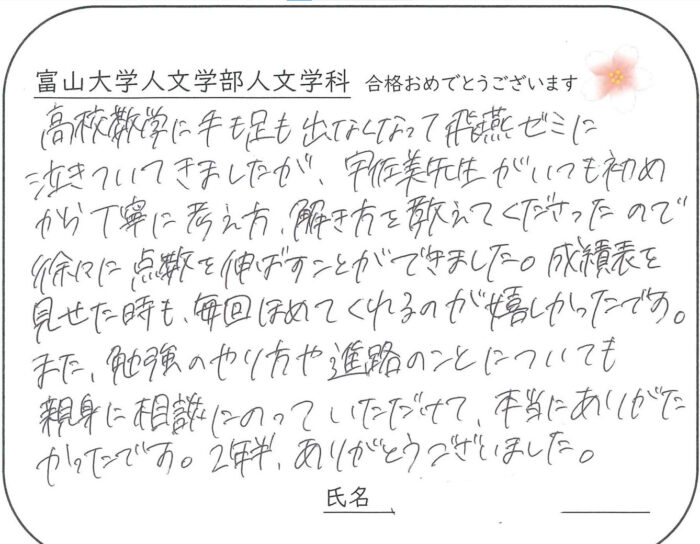 富山大学人文学部人文学科 合格おめでとうございます
高校数学に手も足も出なくなって飛燕ゼミに
泣きついてきましたが、宇佐美先生がいつも初め
から丁寧に考え方、解き方を教えてくださったので
徐々に点数を伸ばすことができました。成績表を
見せた時も、毎回ほめてくれるのが嬉しかったです。
また、勉強のやり方や進路のことについても
親身に相談にのっていただけて、本当にありがた
かったです。2年半、ありがとうございました。
氏名